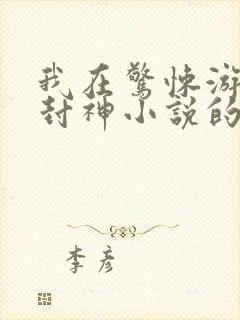 我在驚悚游
封神小説的
李彦